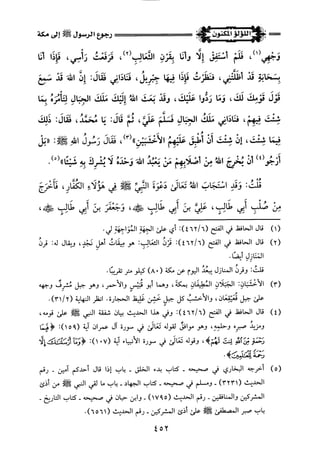 اللؤلؤ المكنون
رجوع الرسول ﷺ إلى مكة
وَجْهِي (١)، فَلَمْ أَسْتَفِقْ إِلَّا وَأَنَا بِقَرْنِ الثَّعَالِبِ (٢)، فَرَفَعْتُ رَأْسِي، فَإِذَا أَنَا
بِسَحَابَةٍ قَدْ أَظَلَّتْنِي، فَنَظَرْتُ فَإِذَا فِيهَا جِبْرِيلُ، فَنَادَانِي فَقَالَ: إِنَّ اللهَ قَدْ سَمِعَ
قَوْلَ قَوْمِكَ لَكَ، وَمَا رَدُّوا عَلَيْكَ، وَقَدْ بَعَثَ اللهُ إِلَيْكَ مَلَكَ الْجِبَالِ لِتَأْمُرَهُ بِمَا
شِئْتَ فِيهِمْ، فَنَادَانِي مَلَكُ الْجِبَالِ فَسَلَّمَ عَلَيَّ، ثُمَّ قَالَ: يَا مُحَمَّدُ، فَقَالَ: ذَلِكَ
فِيمَا شِئْتَ، إِنْ شِئْتَ أَنْ أُطْبِقَ عَلَيْهِمُ الْأَخْشَبَيْنِ (٣)، فَقَالَ رَسُولُ اللهِ ﷺ: «بَلْ
أَرْجُو (٤) أَنْ يُخْرِجَ اللهُ مِنْ أَصْلَابِهِمْ مَنْ يَعْبُدُ اللهَ وَحْدَهُ لَا يُشْرِكُ بِهِ شَيْئًا» (٥).
قُلْتُ: وَقَدِ اسْتَجَابَ اللهُ تَعَالَى دَعْوَةَ النَّبِيِّ ﷺ فِي هَؤُلَاءِ الْكُفَّارِ، فَأَخْرَجَ
مِنْ صُلْبِ أَبِي طَالِبٍ، عَلِيَّ بنَ أَبِي طَالِبٍ ﷺ، وَجَعْفَرَ بنَ أَبِي طَالِبٍ ﷺ،
(١) قال الحافظ في الفتح (٤٦٢/٦): أي على الجهة المُوَاجِهَةِ لِي.
(٢) قال الحافظ في الفتح (٤٦٢/٦): قَرْنُ الثَّعالِبِ: هو ميقَاتُ أهل نَجْدٍ، ويقال له: قَرنُ
المَنَازِلِ أيضًا.
قلتُ: وقَرنُ المنازل يبعُدُ اليوم عن مكة (٨٠) كيلو متر تقريبًا.
(٣) الأخْشَبَانِ: الجَبَلان المُطِيفَانِ بمكة، وهما أبو قُبَيْسٍ والأحمر، وهو جبل مُشرِفٌ وجهه
على جبلِ قُعَيْقِعَان، والأخشبُ كل جبل خَشِنٍ غليظِ الحجارة. انظر النهاية (٣١/٢).
(٤) قال الحافظ في الفتح (٤٦٢/٦): وفي هذا الحديث بيان شفقة النبي ﷺ على قومه،
ومزيد صبره وحلمه، وهو موافقٌ لقوله تَعَالَى في سورة آل عمران آية (١٥٩): ﴿فَبِمَا
رَحْمَةٍ مِنَ اللَّهِ لِنتَ لَهُمْ﴾، وقوله تَعَالَى في سورة الأنبياء آية (١٠٧): ﴿وَمَا أَرْسَلْنَاكَ إِلَّا
رَحْمَةً لِلْعَالَمِينَ﴾.
(٥) أخرجه البخاري في صحيحه - كتاب بدء الخلق - باب إذا قال أحدكم آمين - رقم
الحديث (٣٢٣١) - ومسلم في صحيحه - كتاب الجهاد - باب ما لقي النبي ﷺ من أذى
المشركين والمنافقين - رقم الحديث (١٧٩٥) - وابن حبان في صحيحه - كتاب التاريخ -
باب صبر المصطفى ﷺ على أذى المشركين - رقم الحديث (٦٥٦١).
٤٥٢